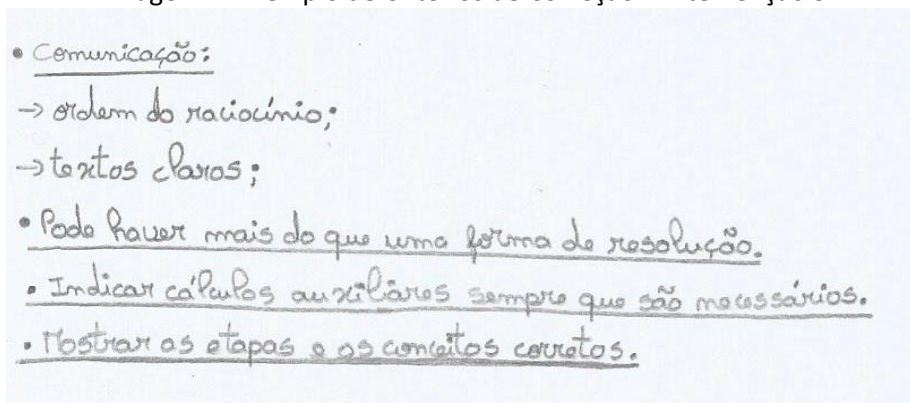 • Comunicação:
→ ordem do raciocínio;
→ textos claros;
• Pode haver mais do que uma forma de resolução.
• Indicar cálculos auxiliares sempre que são necessários.
• Mostrar as etapas e os conceitos corretos.